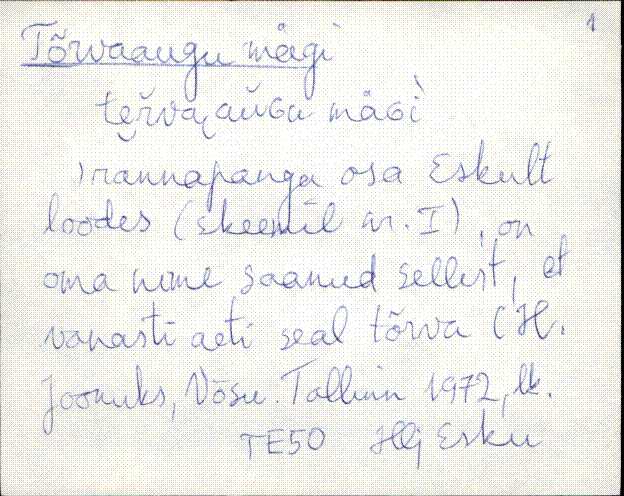 1
Tõrvaaugu mägi
rannapanga osa Eskult
loodes (skeemil nr. I), on
oma nime saanud sellest, et
vanasti aeti seal tõrva (H.
Joonuks, Võsu. Tallinn 1972, lk.
TE50 Hlj Esku